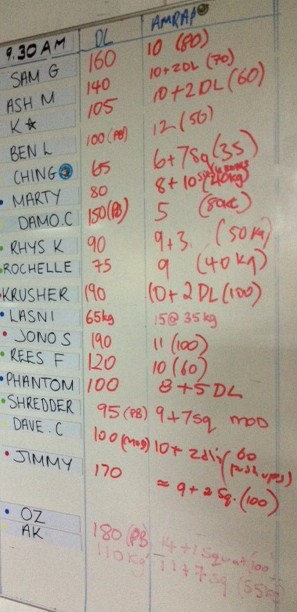 9.30 AM DL AMRAP
SAM G 160 10 (80)
ASH M 140 10+2DL (70)
K☆ 105 10+2 DL (60)
BEN L 100 (PB) 12 (50)
CHING 65 6+7sq (35)
MARTY 80 8+10 (40kg)
DAMO.C 150(PB) 5
RHYS K 90 9+3 (50kg)
ROCHELLE 75 9 (40KG)
KRUSHER 190 10+2 DL (100)
LASNI 65kg 15@ 35kg
JONO S 190 11 (100)
REES F 120 10 (60)
PHANTOM 100 8+5 DL
SHREDDER 95 (PB) 9+7sq MOD
DAVE.C 100 (MOD) 10+ 60
(push ups)
JIMMY 170 ≈ 9+ Sq. (100)
OZ 180 (PB) 14+1 Squat (100)
AK 110kg 11+7 Sq (55kg)